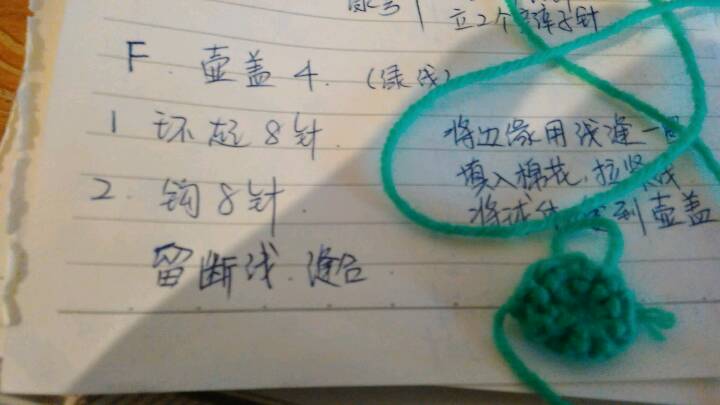 立2个
针
F. 壶盖 4. (绿线)
1 环起 8针.
2. 钩 8针.
留断线. 缝合
将边缘用线缝一
填入棉花. 拉紧线
将
到壶盖